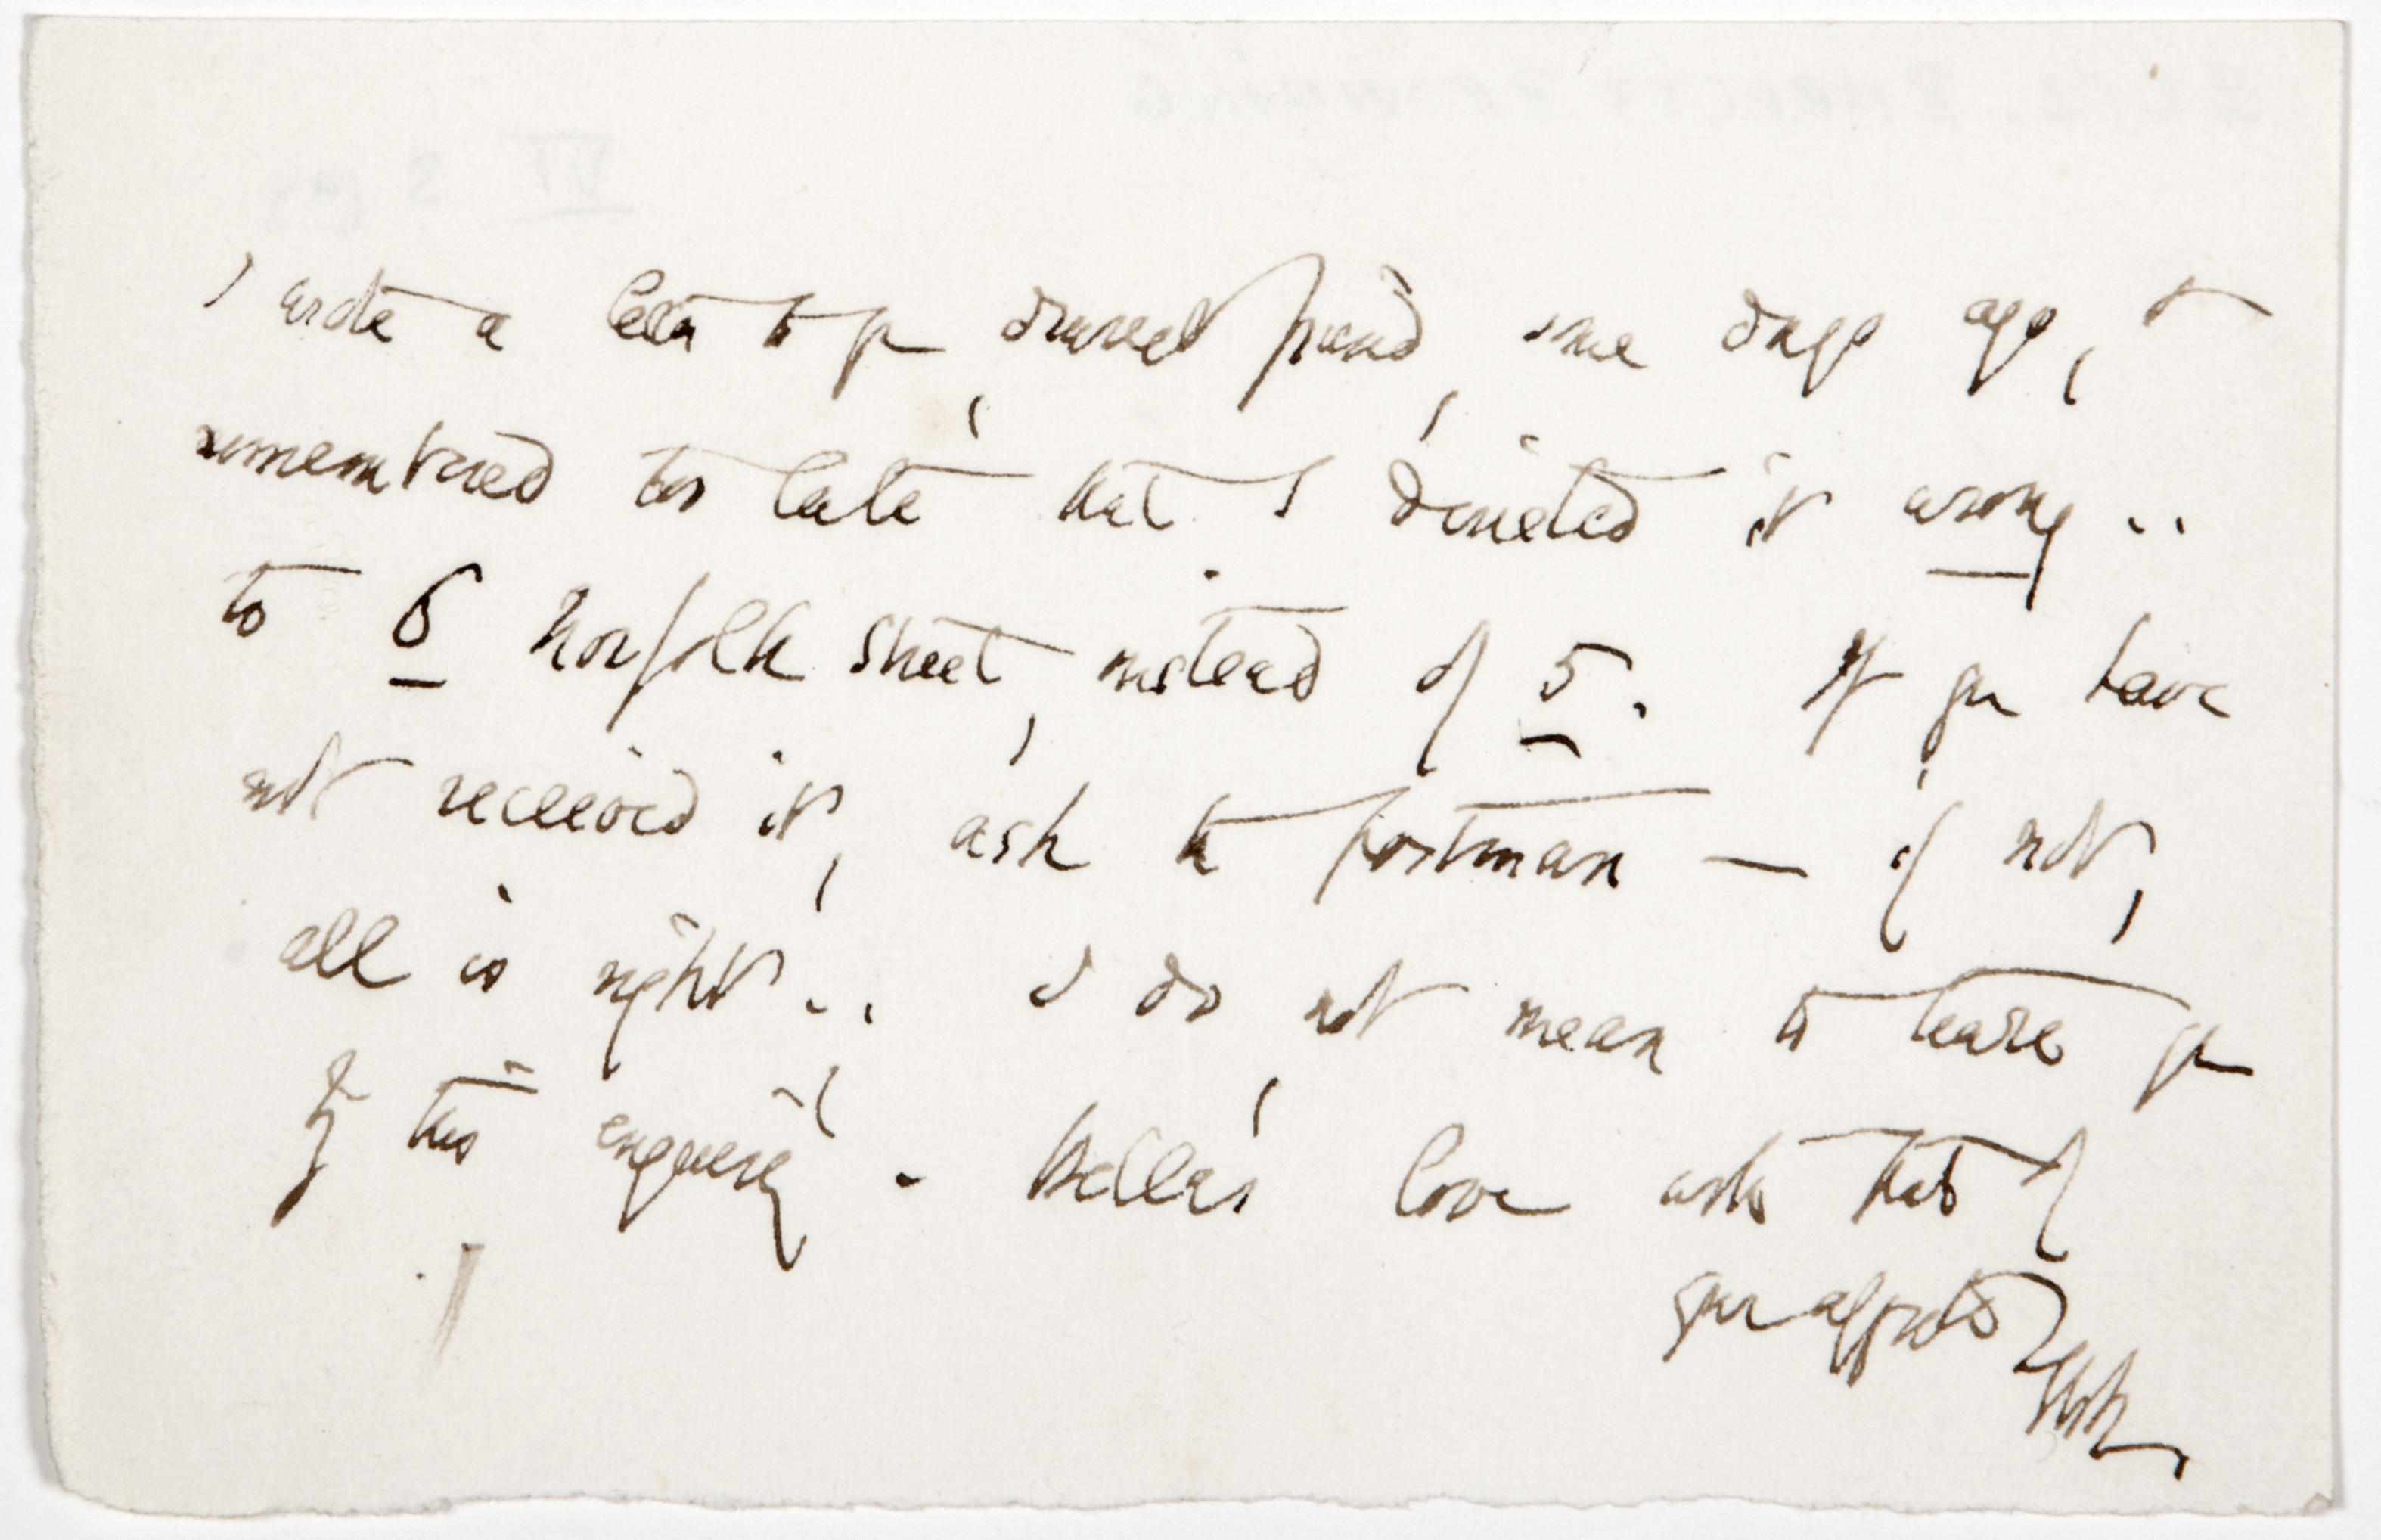 I wrote a letter to you, dearest friend, some days ago, &
remembered too late that I directed it wrong ..
to 6 Norfolk Street, instead of 5. If you have
not received it, ask the postman — if not,
all is right .. I do not mean to tease you
by this enquiry. love with that of
your affecte